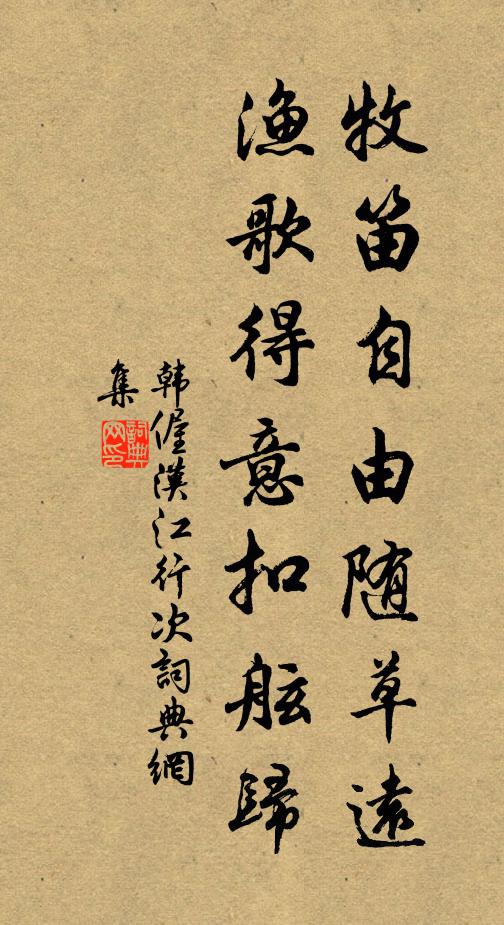 牧笛自由随草遠
漁歌得意扣舷歸
韩偓漢江行次詞典網
集
詞典
网印